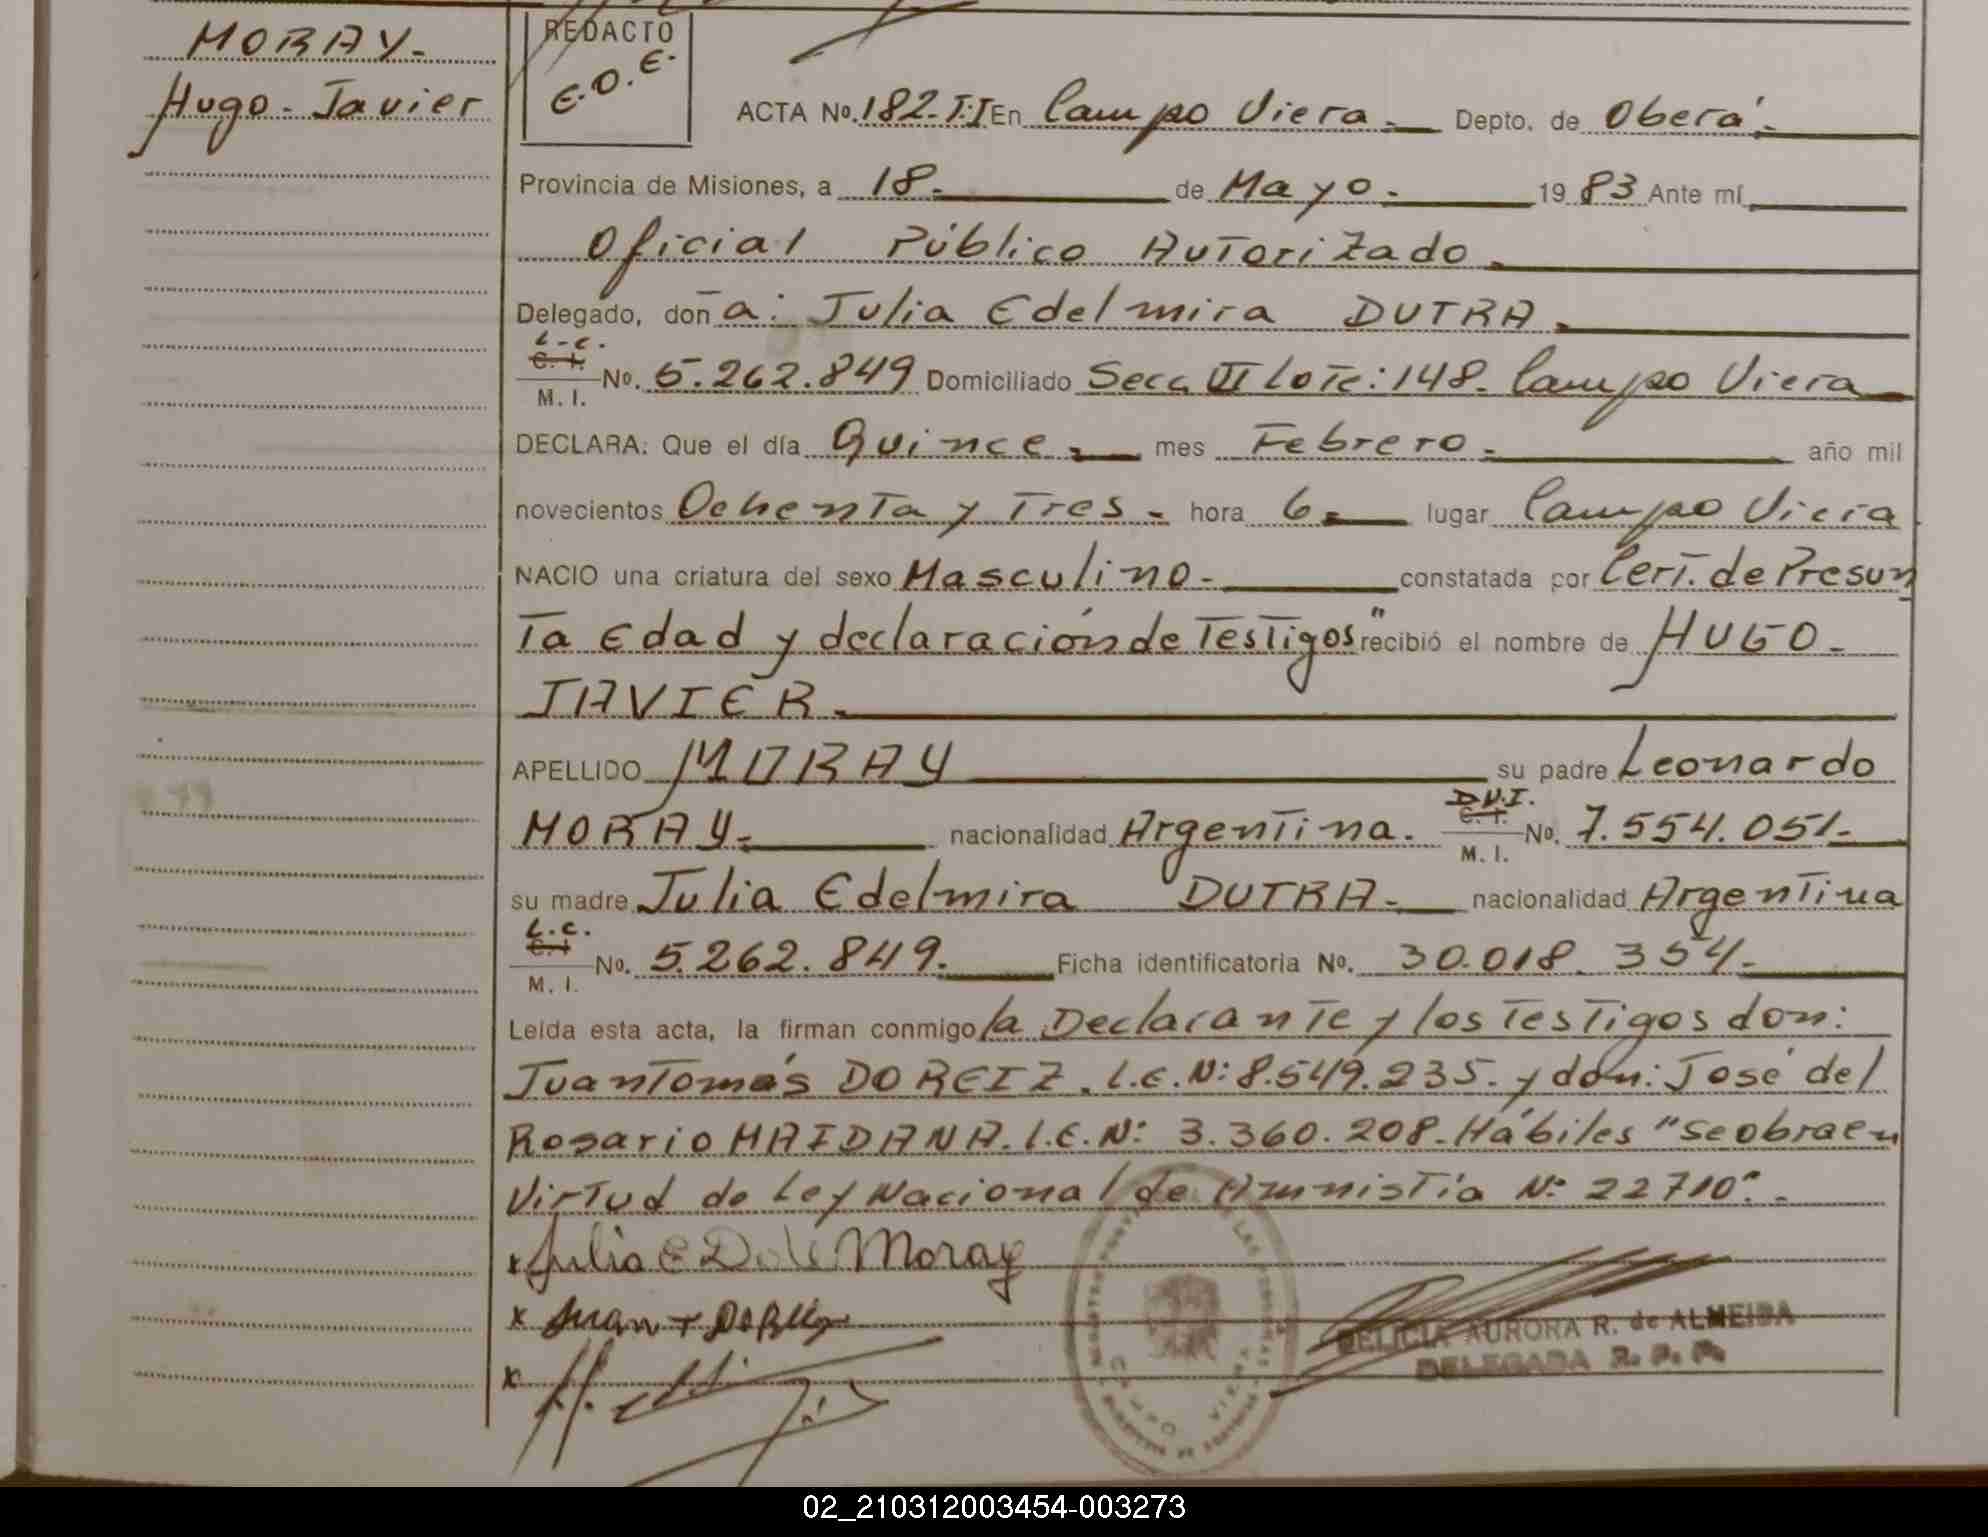 MORAY.
Hugo - Javier
REDACTO
E.O.E.
ACTA No. 182.T.I En Campo Viera. Depto. de Oberá.
Provincia de Misiones, a 18. de Mayo. 1983 Ante mí
Oficial Público Autorizado.
Delegado, doña: Julia Edelmira DUTRA.
L.C.
C. I.
M. I. No. 5.262.849 Domiciliado Secc. III Lote: 148. Campo Viera
DECLARA: Que el día Quince. mes Febrero. año mil
novecientos Ochenta y Tres. hora 6. lugar Campo Viera
NACIO una criatura del sexo Masculino. constatada por Cert. de Presun
ta Edad y declaración de Testigos" recibió el nombre de HUGO.
JAVIER.
APELLIDO MORAY su padre Leonardo
D.N.I.
C. I.
MORAY. nacionalidad Argentina. M. I. No. 7.554.051.
su madre Julia Edelmira DUTRA. nacionalidad Argentina
L.C.
C. I.
M. I. No. 5.262.849. Ficha identificatoria No. 30.018.354.
Leída esta acta, la firman conmigo la Declarante y los Testigos don:
Juan Tomás DOREIZ. L.E.N: 8.549.235. y don: José del
Rosario MAIDANA. L.E.N: 3.360.208. Hábiles "Se obra en
Virtud de Ley Nacional de Amnistía N: 22710".
x Julia E D de Moray
x Juan T
x
CAMPO VIERA
DELICIA AURORA R. de ALMEIDA
DELEGADA R. P. P.
02_210312003454-003273